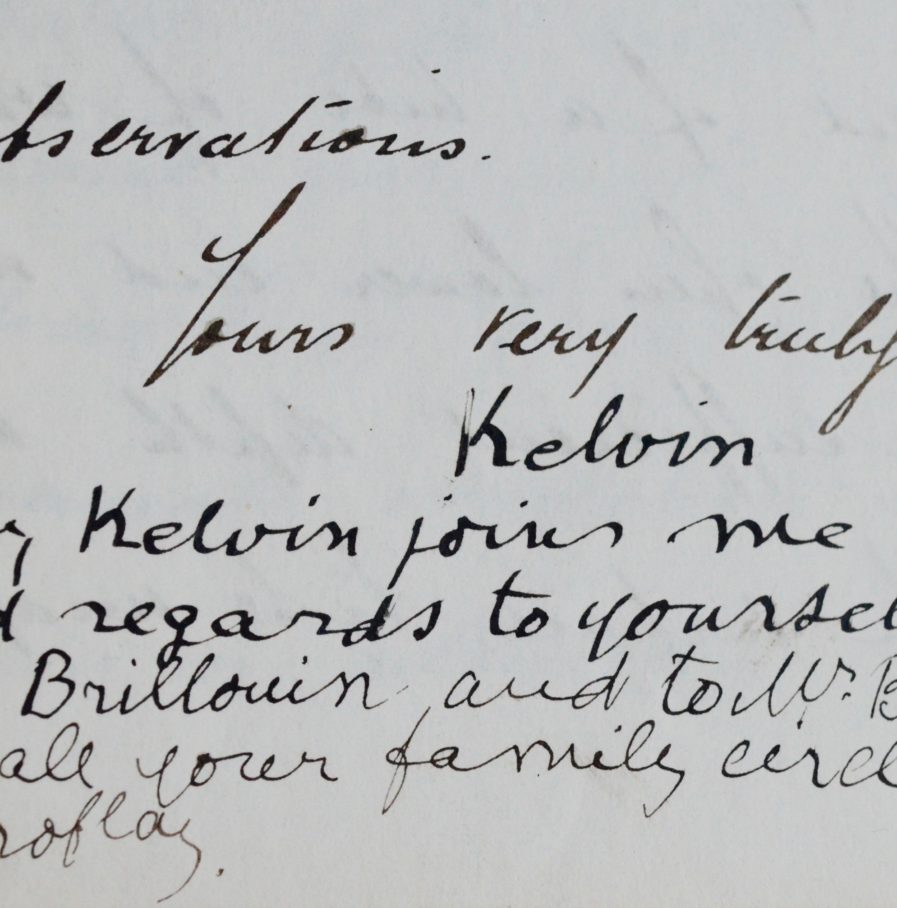 bservations.
Yours very truly
Kelvin
y Kelvin joins me
d regards to yoursel
Brillouin and to Mr. B
all your family circl
roflay.